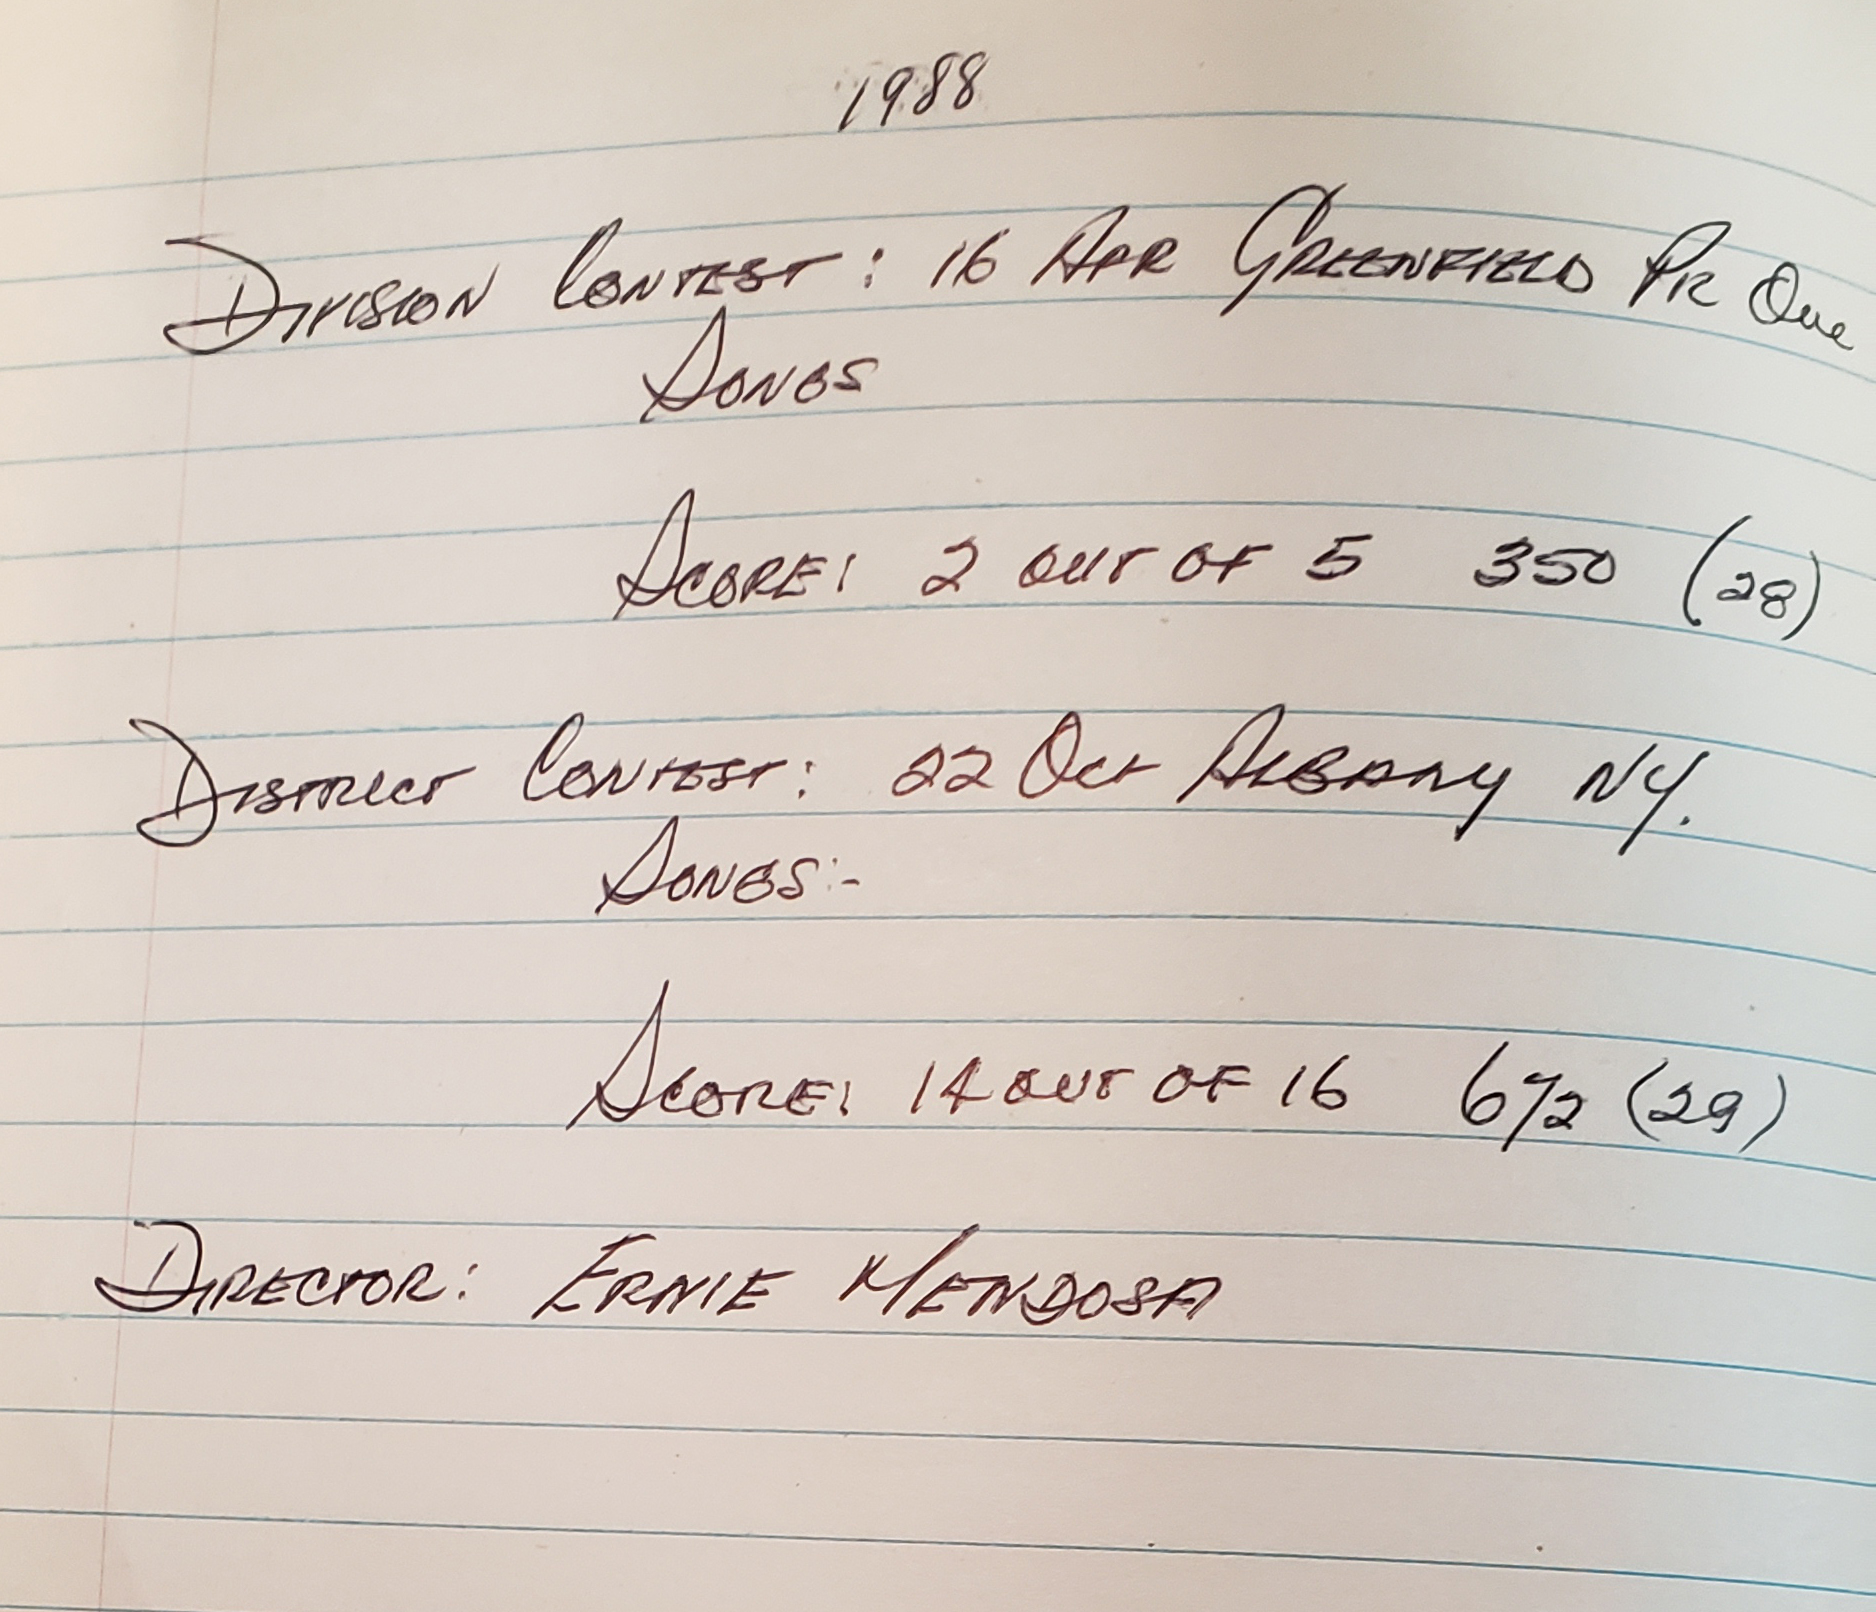 1988
DIVISION CONTEST: 16 APR GREENFIELD PK Que
SONGS
SCORE: 2 OUT OF 5 350 (28)
DISTRICT CONTEST: 22 Oct ALBANY NY.
SONGS:-
SCORE: 14 OUT OF 16 672 (29)
DIRECTOR: ERNIE MENDOSA